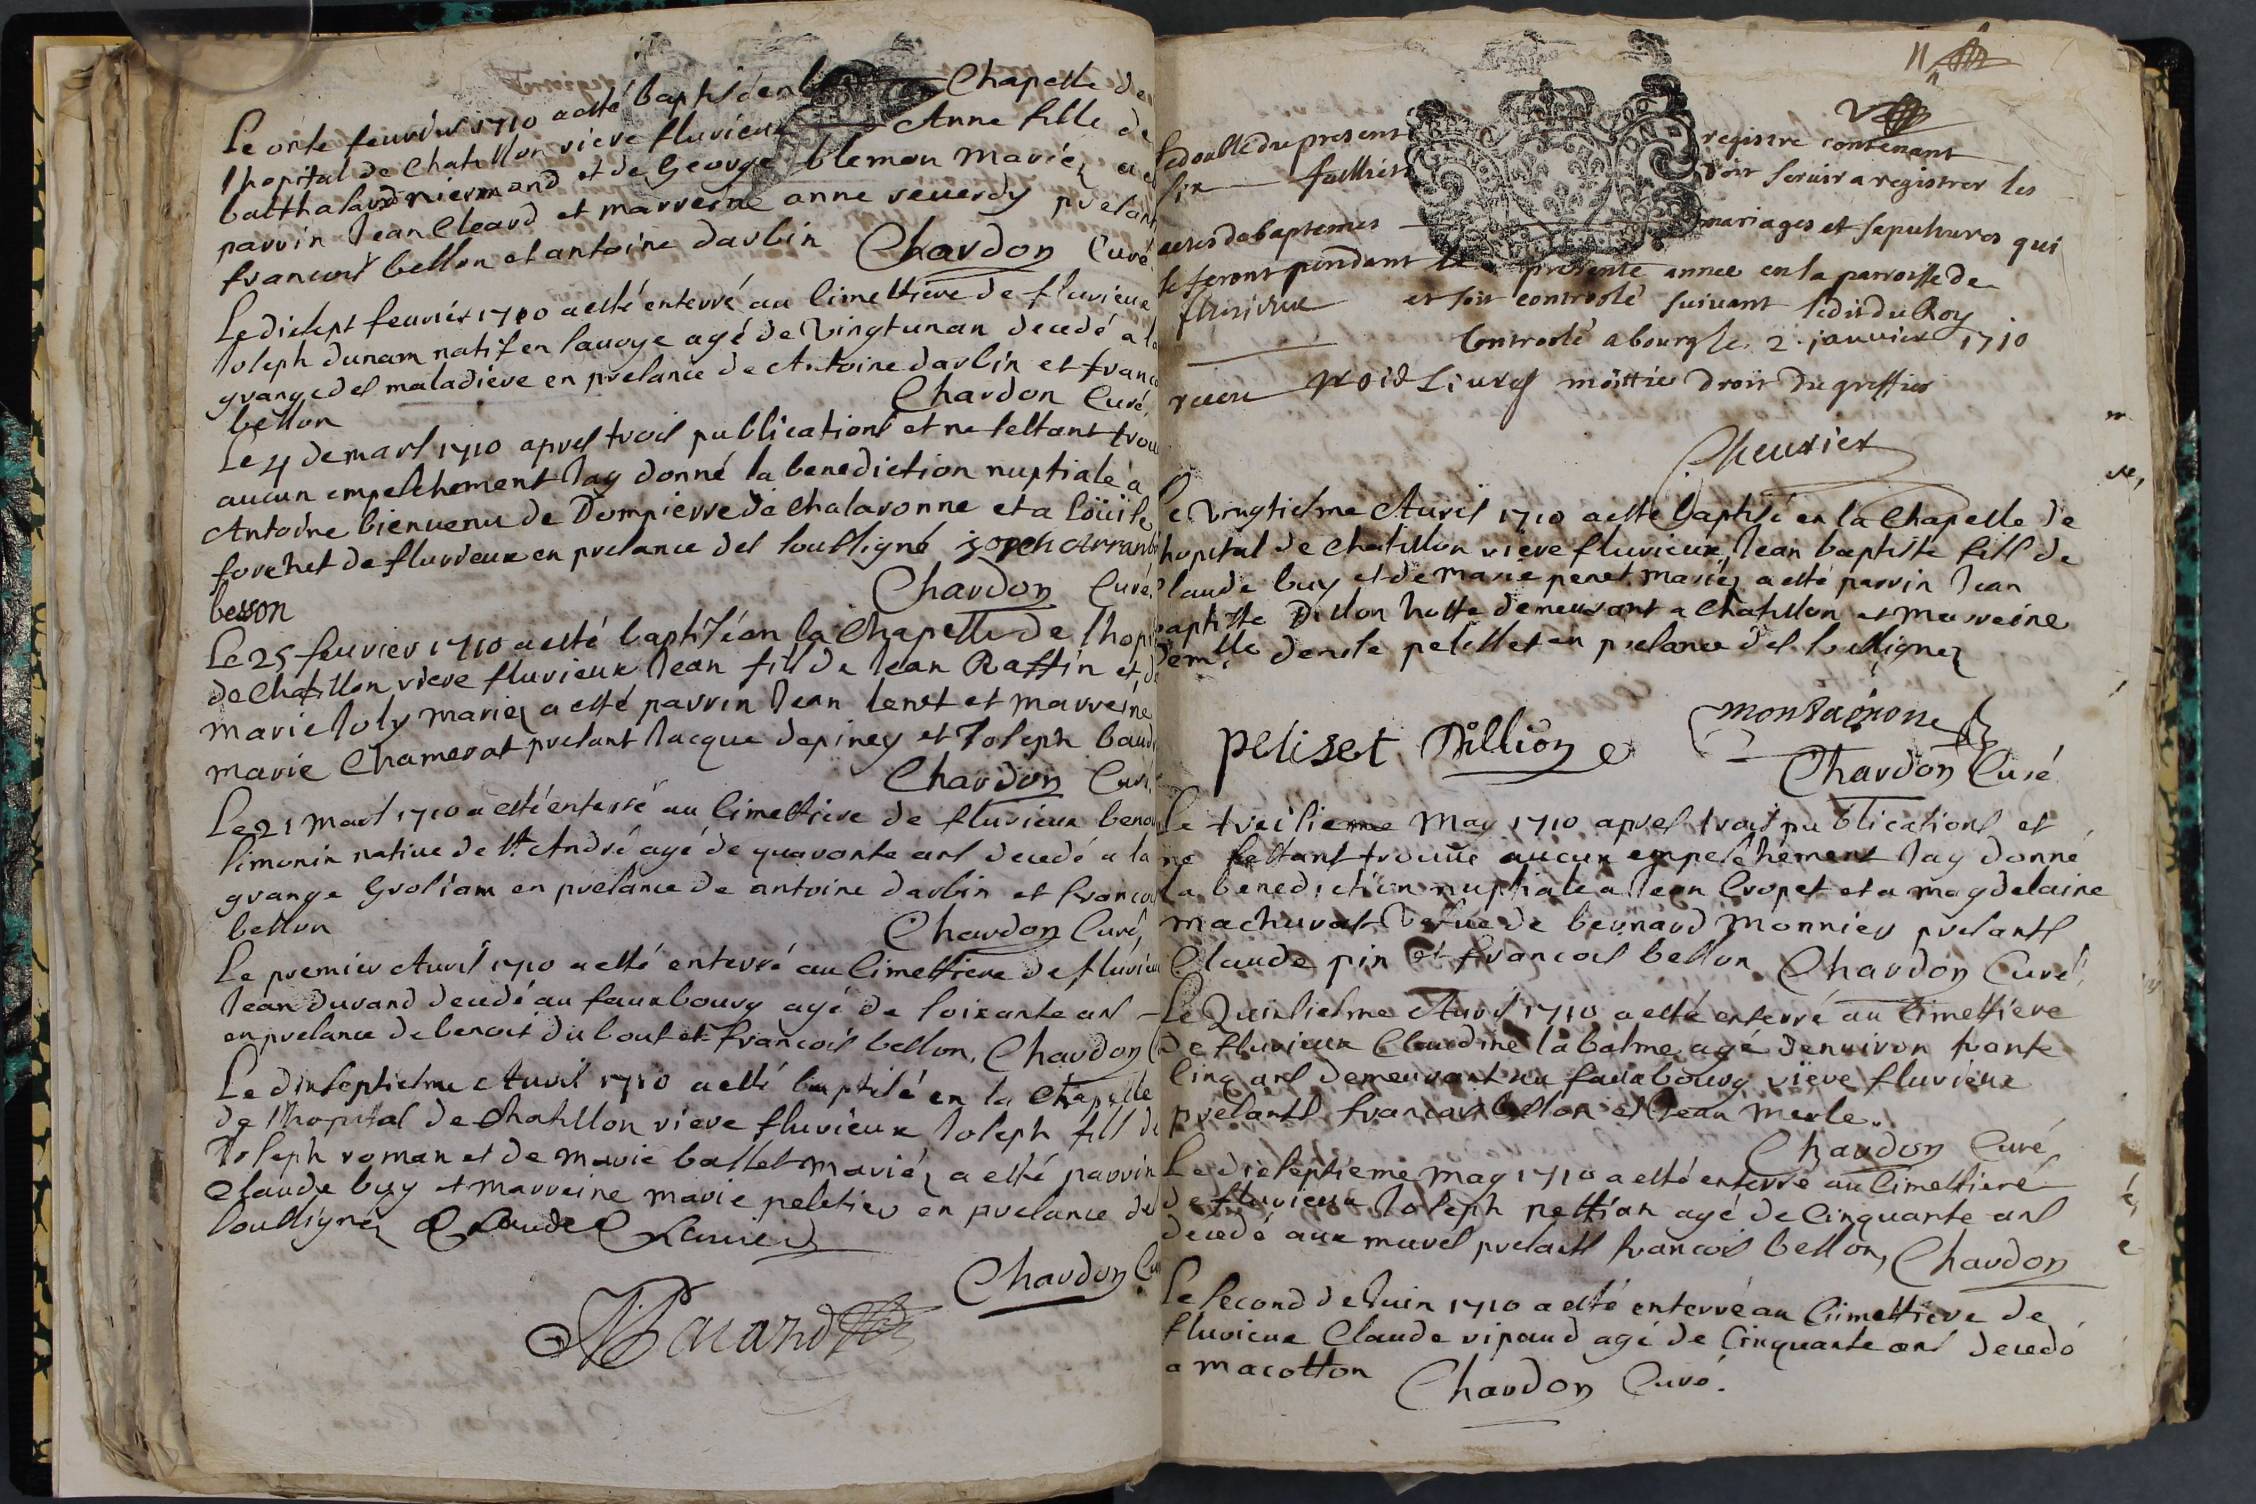 Le onse feuvrier 1710 a esté baptisé en la Chapelle de
lhopital de Chatillon viere fluvieux Anne fille de
balthasard niermond et de George blemon mariez a esté
parrin Jean Cleard et marreine anne reverdy presant
francois bellon et antoine darbin Chardon Curé
Le disept feuvrier 1710 a esté enterré au Cimettiere de fluvieux
Joseph dunam natif en Savoye agé de vingt un an decedé a la
grange des maladiere en presance de Antoine darbin et franc
bellon Chardon Curé
Le 4 de mars 1710 apres trois publications et ne sestant trou
aucun empeschement Jay donné la benediction nuptiale a
Antoine bienvenu de Dompierre de Chalaronne et a Loüise
forchet de fluvieux en presance des soussigné
besson Chardon Curé
Le 25 feuvrier 1710 a esté baptisé en la Chapelle de lhopi
de Chatillon viere fluvieux Jean fils de Jean Raffin et de
marie Joly mariez a esté parrin Jean lenet et marreine
marie Chamerat presant Jacque depiney et Joseph baud
Chardon Curé
Le 21 Mars 1710 a esté enterré au Cimettiere de fluvieux beno
Simonin native de St André agé de quaronte ans decedé a la
grange Groliam en presance de antoine darbin et francoi
bellon Chardon Curé
Le premier Avril 1710 a esté enterré au Cimettiere de fluvieu
Jean durand decedé au fauxbourg agé de soixante ans
en presance de benoit du bout et francois bellon. Chardon C
Le dixseptiesme Avril 1710 a esté baptisé en la Chapelle
de lhopital de Chatillon viere fluvieux Joseph fils de
Joseph roman et de marie ballet mariéz a esté parrin
Claude buy et marreine marie peletier en presance des
soussignéz Claude
Chardon Cu
11
Le double du present registre contenant
six feullies pour servir a registrer les
actes de baptemes mariages et sepultures qui
se feront pendant la presente annee en la parroisse de
fluvieux et soit controolé suivant ledit du Roy
Controolé a bourg le 2 janvier 1710
receu trois Livres moittie droit du greffier
Cheurier
Le vingtiesme Avril 1710 a esté baptisé en la Chapelle de
hopital de Chatillon viere fluvieux, Jean baptiste fils de
Claude buy et de marie penet mariéz a esté parrin Jean
baptiste Dillon hoste demeurant a Chatillon et marreine
demlle denise pelisset en presance des soussignez
peliset Dillion montaigne
Chardon Curé
Le treisieme May 1710 apres trois publications et
ne sestant trouvé aucun empeschement Jay donné
la benediction nuptiale a Jean Cropet et a magdelaine
machurat vefve de bernard Monnier presants
Claude pin et francois bellon Chardon Curé
Le Quinsiesme Avril 1710 a esté enterré au Cimettiere
de fluvieux Claudine labalme agé denviron trante
Cinq ans demeurant au fauxbourg viere fluvieux
presants francois bellon et Jean merle.
Chardon Curé
Le dieseptieme May 1710 a esté enterré au Cimettiere
de fluvieux Joseph nettian agé de Cinquante ans
decedé aux mures presants francois bellon, Chardon
Le Second de Juin 1710 a esté enterré au Cimettiere de
fluvieux Claude ripaud agé de Cinquante ans decedé
a macotton Chardon Curé.